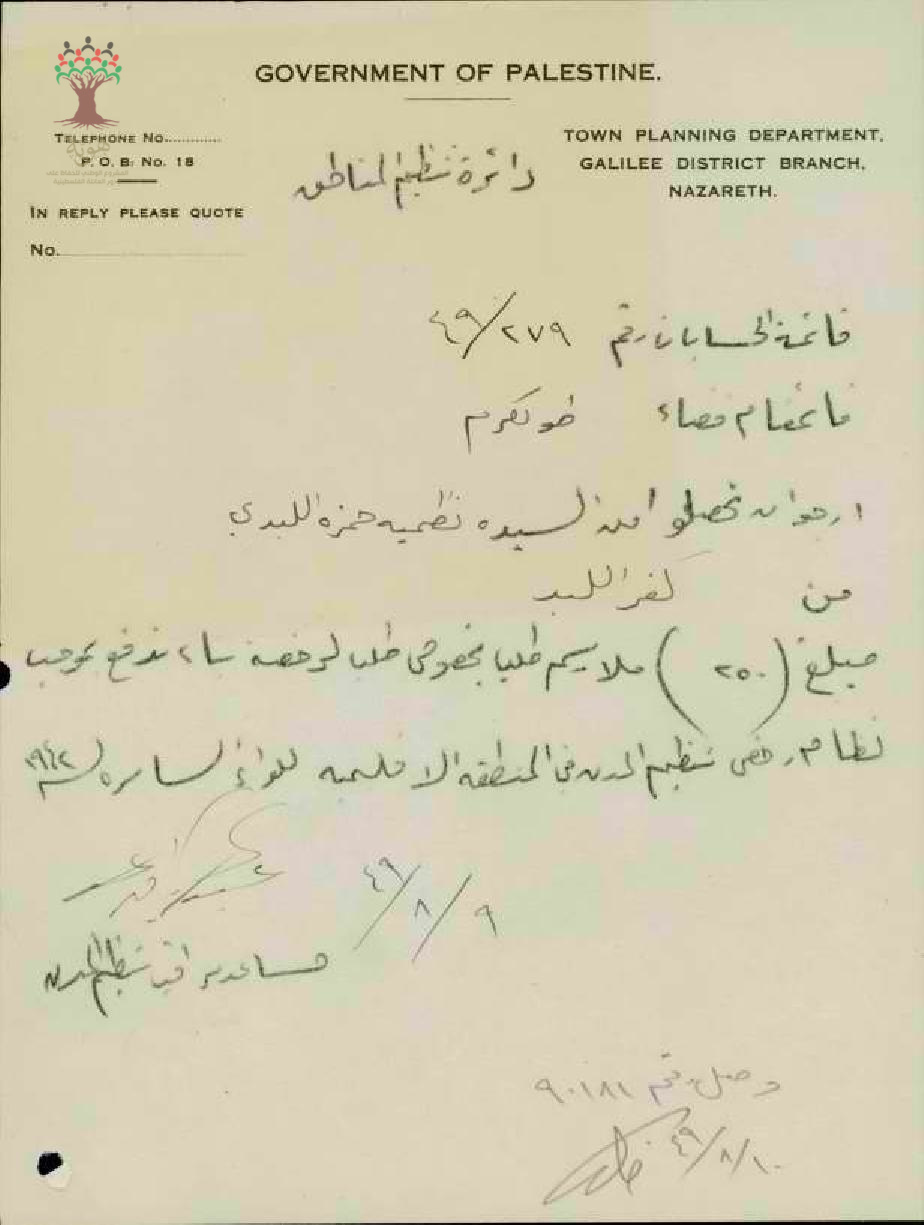 GOVERNMENT OF PALESTINE.
TELEPHONE NO............
P. O. B: No. 18
IN REPLY PLEASE QUOTE
No.
TOWN PLANNING DEPARTMENT,
GALILEE DISTRICT BRANCH,
NAZARETH.
دائرة تنظيم المناطق
قائمة الحسابات رقم ٢٧٩/٤٩
قائمقام قضاء طولكرم
ارجو ان تحصلوا من السيده نظميه حمزه اللبدي
من كفر اللبد
مبلغ (٢٥٠) ملا رسم طلب بخصوص طلب لرخصة بناء تدفع بموجب
نظام رخص تنظيم المدن في المنطقه الاقليميه للواء السامره لسنة ١٩٤٢
٩/٨/٤٩
مساعد مراقب تنظيم المدن
وصل رقم ٩٠١٨١
١٠/٨/٤٩